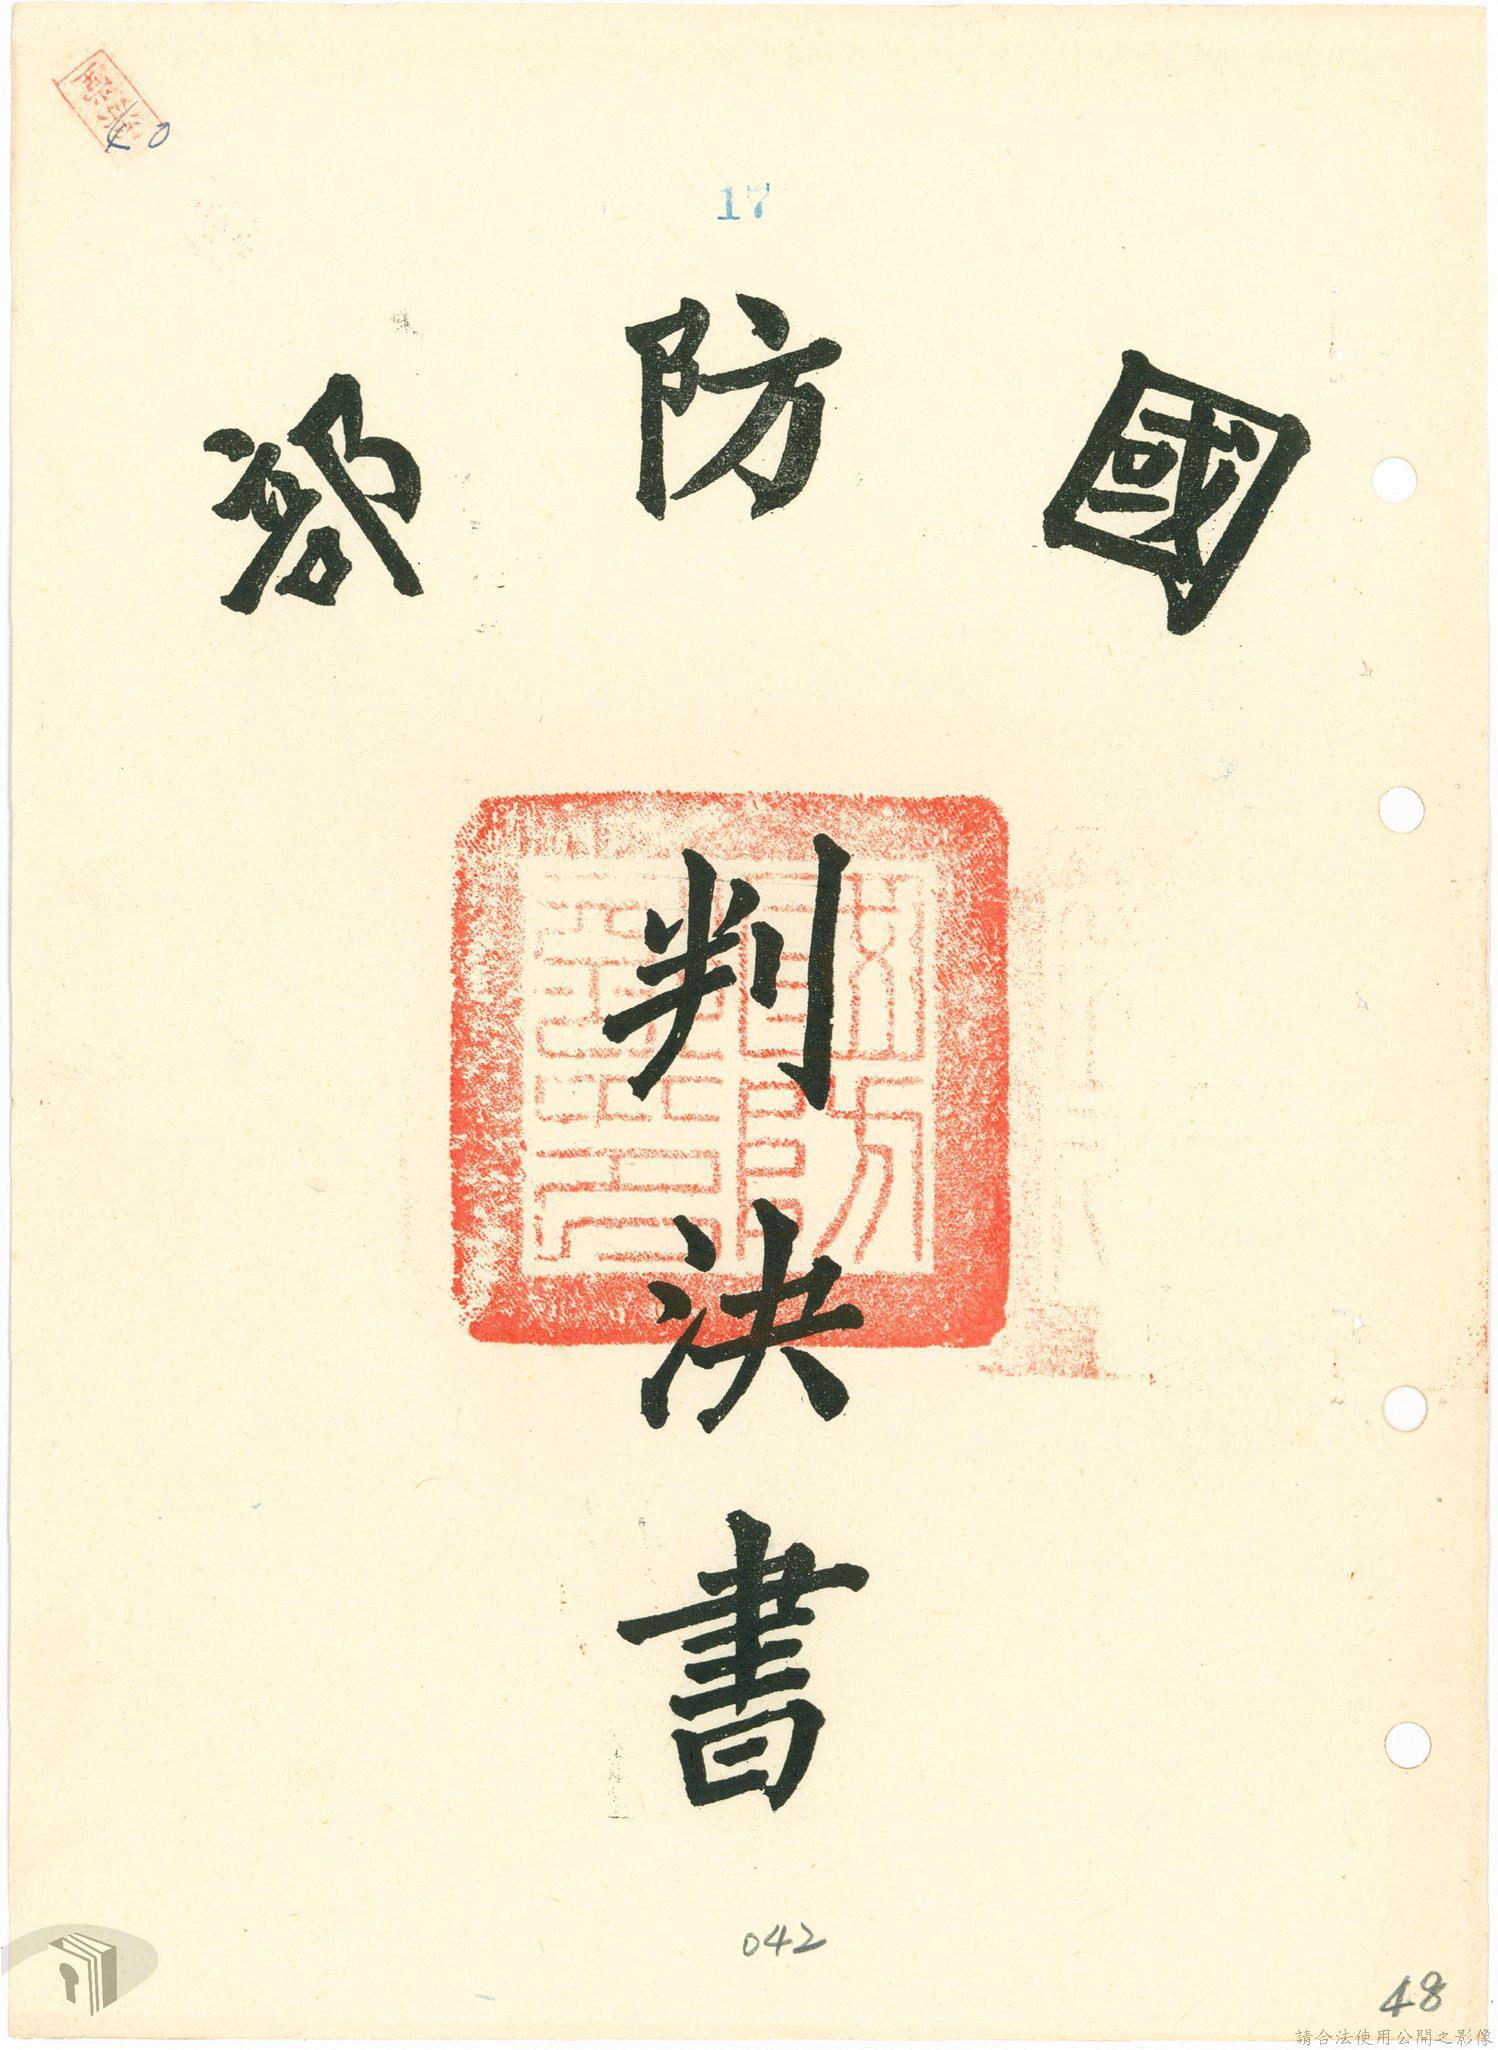 40
17
國防部
判決書
042
48
請合法使用公開之影像